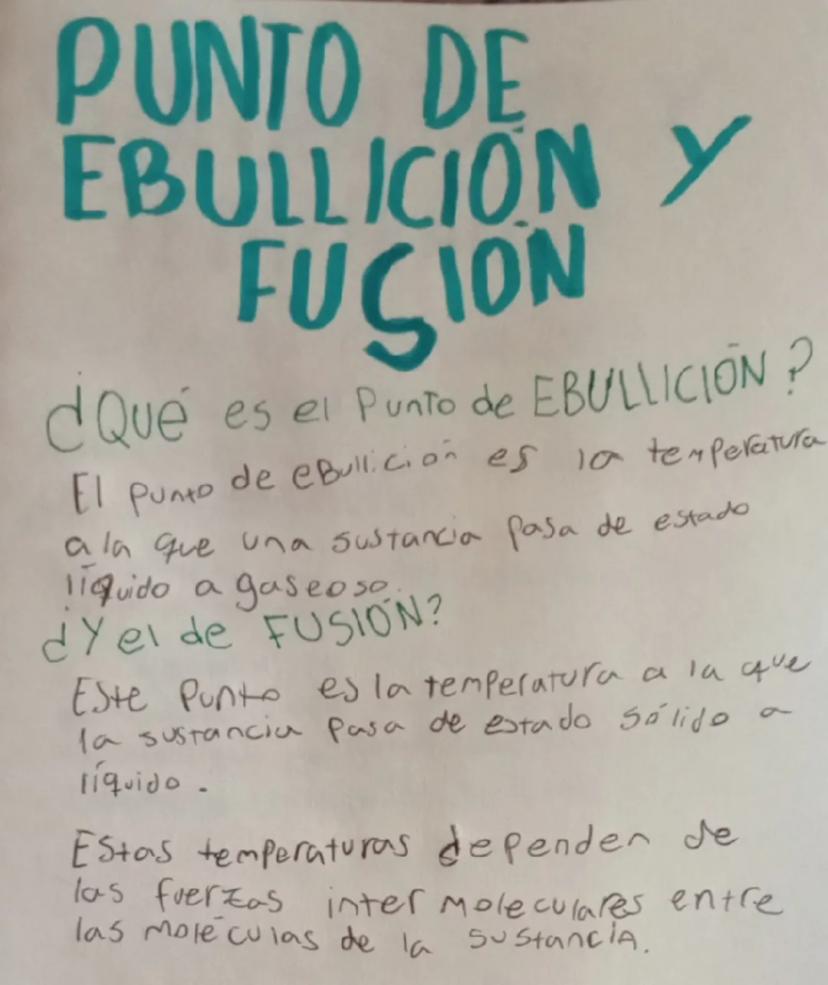 PUNTO DE
EBULLICIÓN Y
FUSIÓN
¿Qué es el Punto de EBULLICIÓN?
El punto de eBullición es la temperatura
a la que una sustancia pasa de estado
líquido a gaseoso.
¿Y el de FUSIÓN?
Este Punto es la temperatura a la que
la sustancia pasa de estado sólido a
líquido.
Estas temperaturas dependen de
las fuerzas inter moleculares entre
las moléculas de la sustancia.